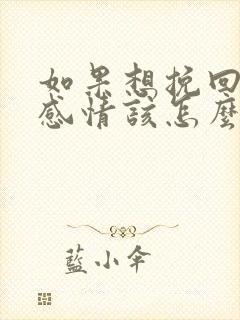 如果想挽回
感情该怎麼
藍小伞